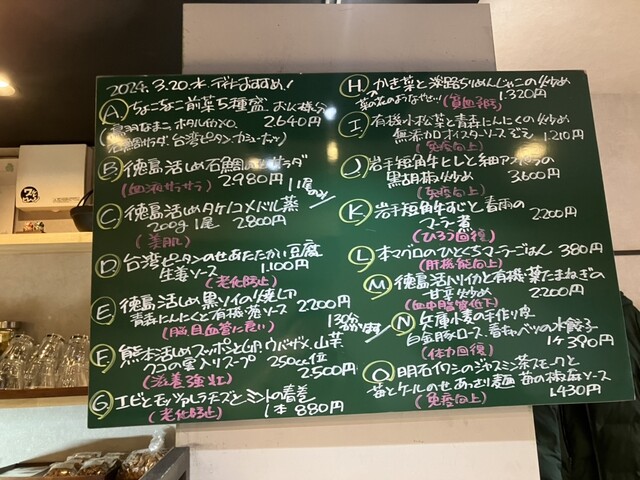 2024. 3.20.水. ディナーおすすめ!
A ちょこちょこ前菜5種盛 おひとり様分
2640円
ホタルイカXO.
台湾ピータン カシューナッツ
B 徳島活〆石鯛 サラダ
(血液サラサラ) 2980円
C 徳島活〆タケノコメバル蒸
200g 1尾 2800円
(美肌)
D 台湾ピータンのせあたたかい豆腐
生姜ソース 1,100円
(老化防止)
E 徳島活〆黒ソイの焼し
青森にんにくと有機 ソース 2200円
(脳、目、血管に良い)
F 熊本活〆スッポンと 山芋
クコの実入りスープ 250cc 1位
(滋養強壮) 2,500円
G エビとモッツァレラチーズとミントの春巻
(老化防止) 1本 880円
H かき菜と淡路ちりめんじゃこの炒め
1,320円
(貧血予防)
I 有機小松菜と青森にんにくの炒め
無添加オイスターソース 1,210円
(免疫向上)
J 岩手短角牛 としと細アスパラの
黒胡椒炒め 3,600円
(免疫向上)
K 岩手短角牛すじと春雨の
マーラー煮 2200円
(ひろう回復)
L 本マグロのひとくちマーラーごはん 380円
(肝機能向上)
M 徳島活ハリイカと有機葉たまねぎの
炒め 2,200円
(血中脂質低下)
N 兵庫小麦の手作り皮
白金豚ロース、春キャベツの水餃子
(体力回復) 1ケ390円
O 明石イワシのジャスミン茶スモークと
苗とケールのせあっさり麺 苗の椒麻ソース
(免疫向上) 1,430円